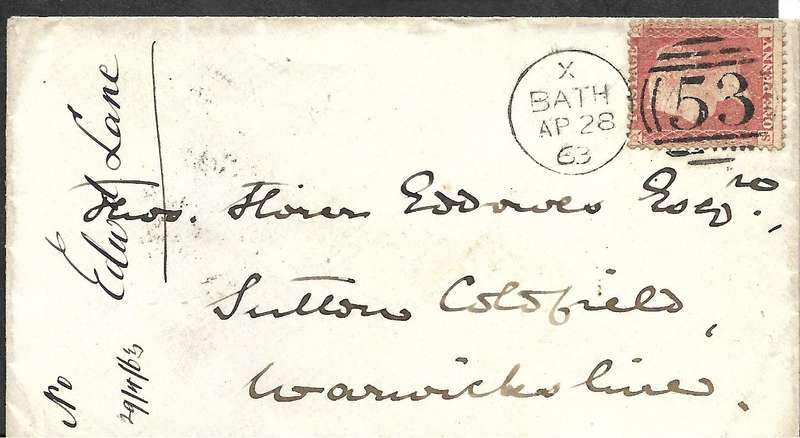 X
BATH
AP 28
63
53
ONE PENNY
Thos. Horer Eddowes Esqre.,
Sutton Coldfield,
Warwickshire.
Edwd Lane
No
29/4/63